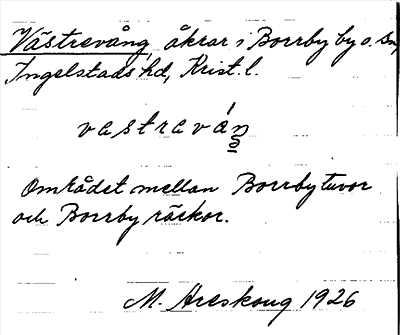 Västrevång, åkrar i Borrby by o. sn,
Ingelstads hd, Krist. l.
vastraván
Området mellan Borrby tuvor
och Borrby räckor.
M. Areskoug 1926